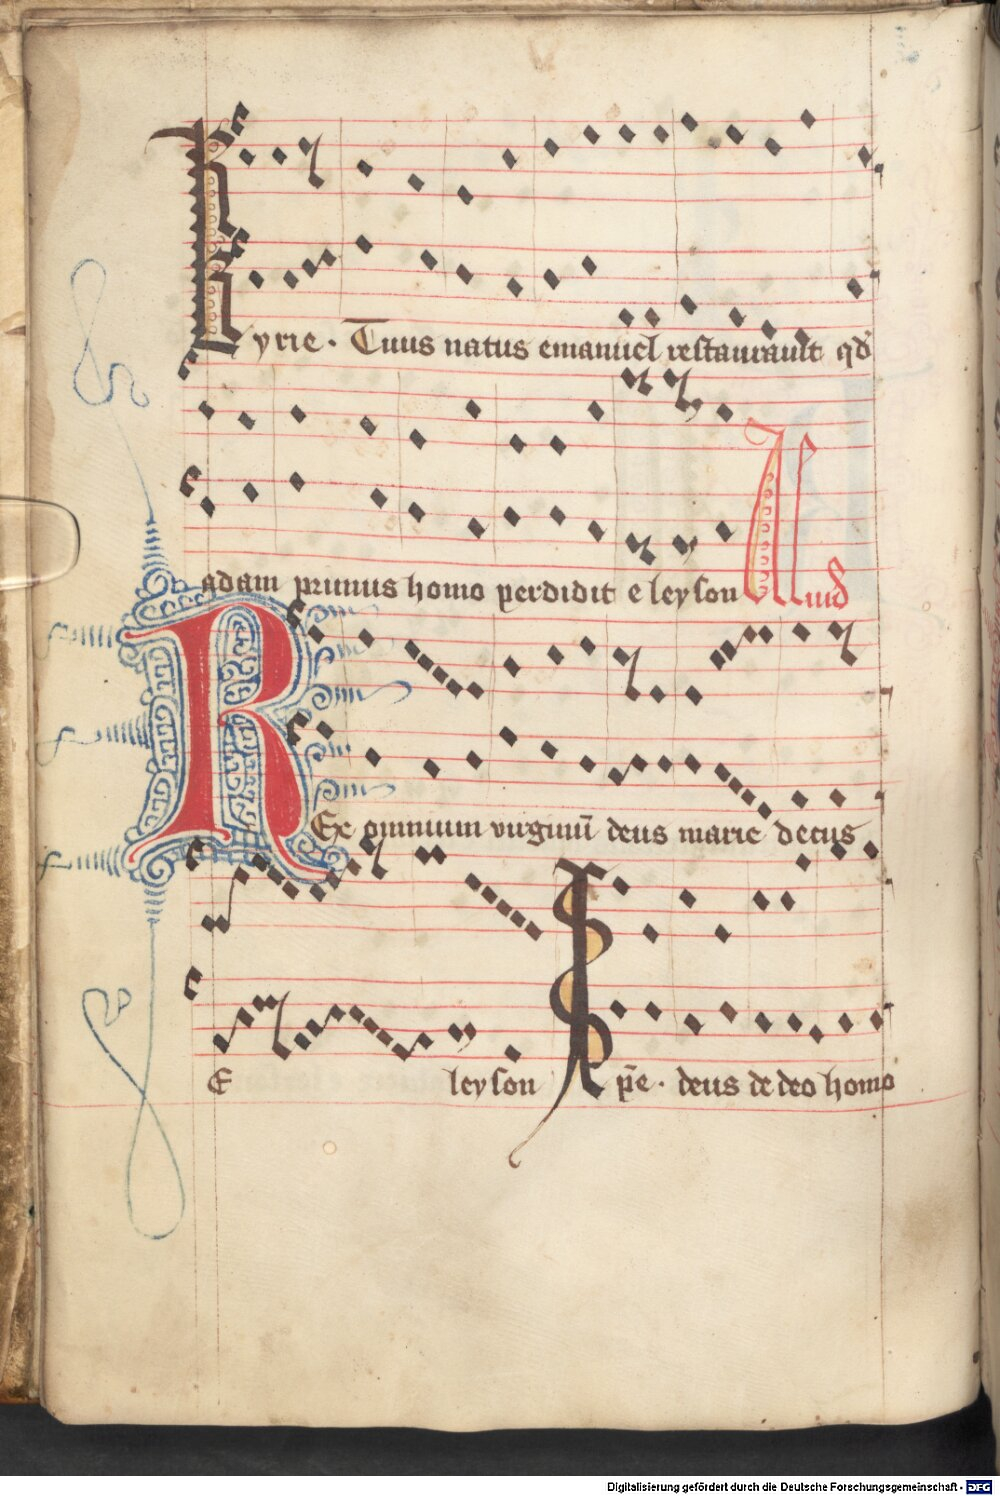 Kyrie · Tuus natus emanuel restaurauit qd̛
adam primus homo perdidit e leyson Aliud
REx omnium virginū deus marie decus
E leyson Xp̄e · deus de deo homo
Digitalisierung gefördert durch die Deutsche Forschungsgemeinschaft - DFG